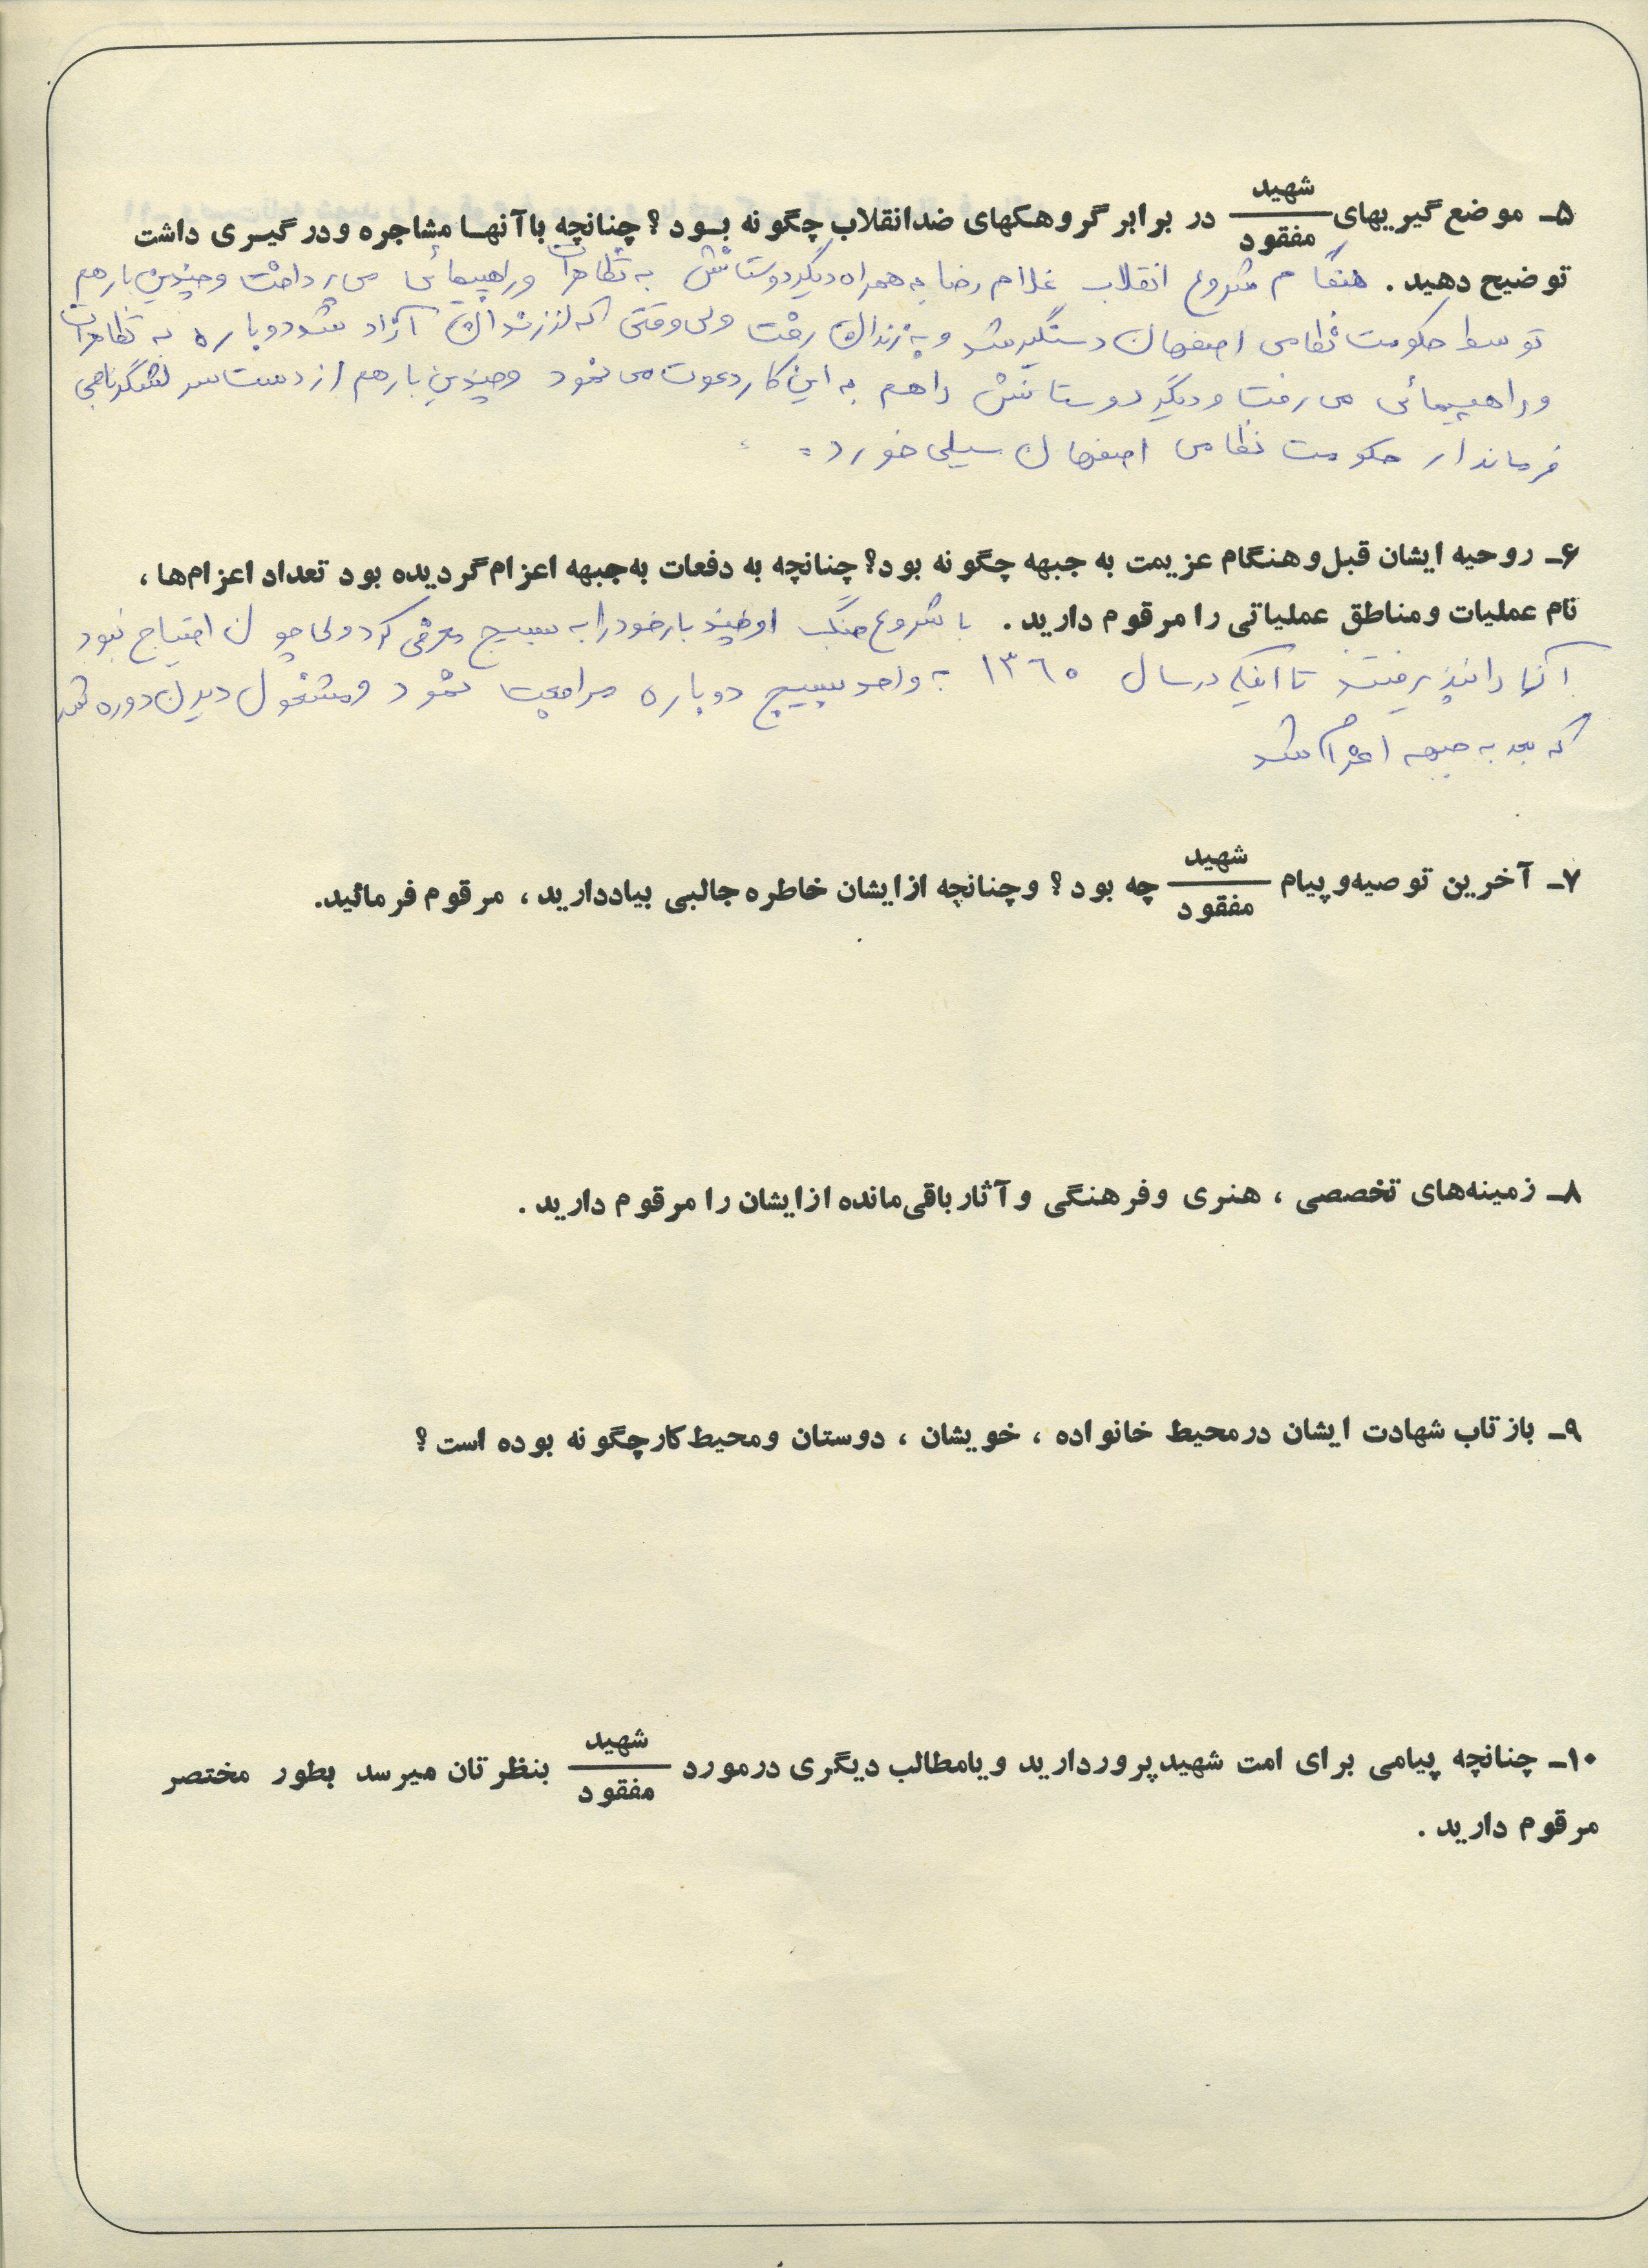 ۵ـ موضع گیریهای شهید/مفقود در برابر گروهکهای ضدانقلاب چگونه بود؟ چنانچه با آنها مشاجره و درگیری داشت
توضیح دهید. هنگام شروع انقلاب غلامرضا به همراه دیگر دوستانش به تظاهرات و راهپیمائی می پرداخت و چندین بار هم
توسط حکومت نظامی اصفهان دستگیر شد و به زندان رفت ولی وقتی که از زندان آزاد شد دوباره به تظاهرات
و راهپیمائی می رفت و دیگر دوستانش را هم به این کار دعوت می نمود و چندین بار هم از دست سرلشگر ناجی
فرماندار حکومت نظامی اصفهان سیلی خورد
۶ـ روحیه ایشان قبل و هنگام عزیمت به جبهه چگونه بود؟ چنانچه به دفعات به جبهه اعزام گردیده بود تعداد اعزام‌ها،
نام عملیات و مناطق عملیاتی را مرقوم دارید. با شروع جنگ او چند بار خود را به بسیج معرفی کرد ولی چون احتیاج نبود
آنها را نپذیرفتند تا اینکه در سال ۱۳۶۰ به واحد بسیج دوباره مراجعت نمود و مشغول دیدن دوره شد
که بعد به جبهه اعزام شد
۷ـ آخرین توصیه و پیام شهید/مفقود چه بود؟ و چنانچه از ایشان خاطره جالبی بیاد دارید، مرقوم فرمائید.
۸ـ زمینه‌های تخصصی، هنری و فرهنگی و آثار باقی‌مانده از ایشان را مرقوم دارید.
۹ـ بازتاب شهادت ایشان در محیط خانواده، خویشان، دوستان و محیط کار چگونه بوده است؟
۱۰ـ چنانچه پیامی برای امت شهیدپرور دارید و یا مطالب دیگری در مورد شهید/مفقود بنظرتان میرسد بطور مختصر
مرقوم دارید.